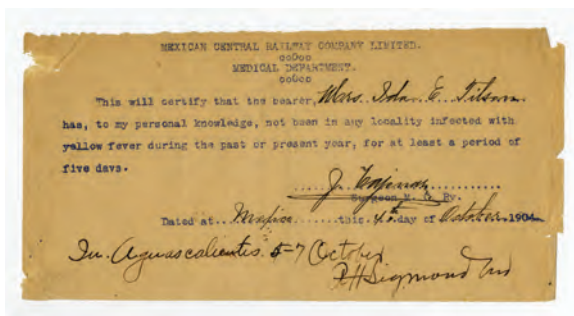 MEXICAN CENTRAL RAILWAY COMPANY LIMITED.
ooOoo
MEDICAL DEPARTMENT.
ooOoo
This will certify that the bearer, Mrs. John E. Tilson
has, to my personal knowledge, not been in any locality infected with
yellow fever during the past or present year, for at least a period of
five days.
Surgeon M. C. Ry.
Dated at...Mexico.......this.4th.day of October.1904
In Aguascalientes 5-7 October